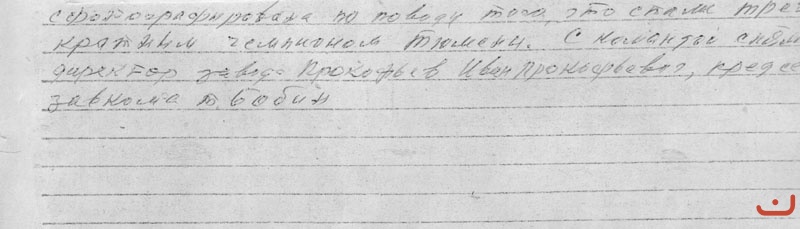 сфотографирована по поводу того, что стали трех
кратным чемпионом Тюмени. С командой
директор завода Прокофьев Иван, предсе
завкома т. Бобин